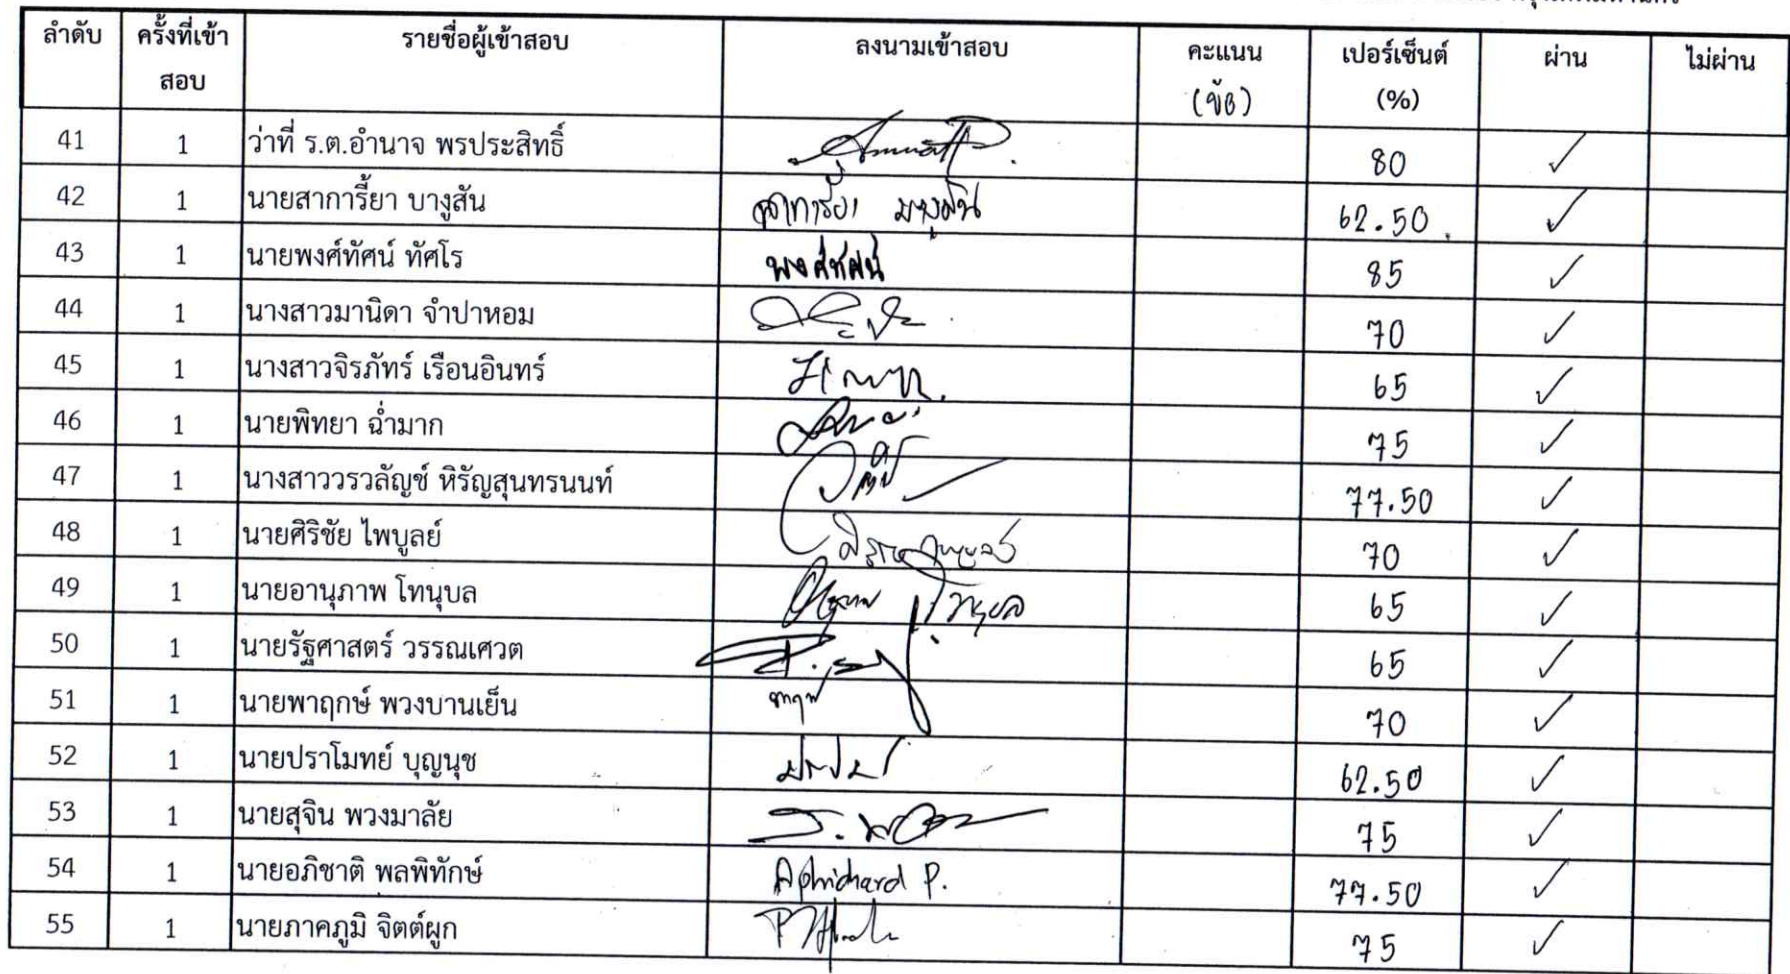 ลำดับ ครั้งที่เข้าสอบ รายชื่อผู้เข้าสอบ ลงนามเข้าสอบ คะแนน (ข้อ) เปอร์เซ็นต์ (%) ผ่าน ไม่ผ่าน
41 1 ว่าที่ ร.ต.อำนาจ พรประสิทธิ์ 80 ✓
42 1 นายสาการี้ยา บางูสัน 62.50 ✓
43 1 นายพงศ์ทัศน์ ทัศโร พงศ์ทัศน์ 85 ✓
44 1 นางสาวมานิดา จำปาหอม 70 ✓
45 1 นางสาวจิรภัทร์ เรือนอินทร์ 65 ✓
46 1 นายพิทยา ฉ่ำมาก 75 ✓
47 1 นางสาววรวลัญช์ หิรัญสุนทรนนท์ 77.50 ✓
48 1 นายศิริชัย ไพบูลย์ 70 ✓
49 1 นายอานุภาพ โทนุบล 65 ✓
50 1 นายรัฐศาสตร์ วรรณเศวต 65 ✓
51 1 นายพาฤกษ์ พวงบานเย็น 70 ✓
52 1 นายปราโมทย์ บุญนุช 62.50 ✓
53 1 นายสุจิน พวงมาลัย 75 ✓
54 1 นายอภิชาติ พลพิทักษ์ Aphichard P. 77.50 ✓
55 1 นายภาคภูมิ จิตต์ผูก 75 ✓